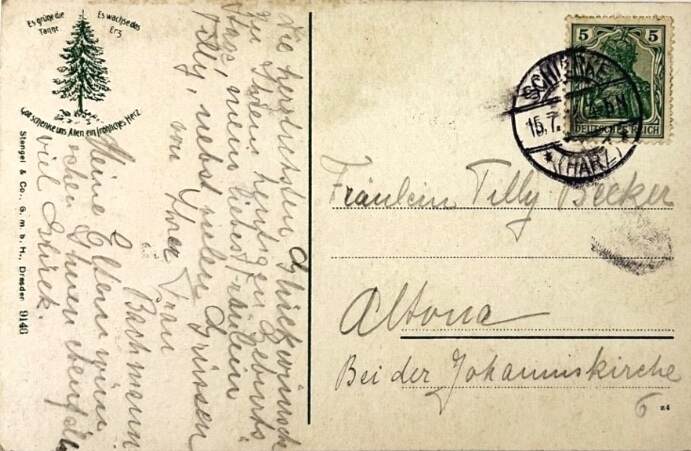 Es grüne die
Tanne
Es wachse das
Erz
Gott schenke uns Allen ein fröhliches Herz
Stengel & Co., G. m. b. H., Dresden 9146
Die herzlichsten Glückwünsche
zu Ihrem heutigen Geburts
tage, mein liebes Fräulein
Tilly, nebst vielen Grüssen
von Ihrer Frau
Bachmann
Meine Eltern wün
schen Ihnen ebenfalls
viel Glück.
5 5
DEUTSCHES REICH
SCHIERKE
15.7. 4-5N
* (HARZ)
Fräulein Tilly Becker
Altona
Bei der Johanniskirche
6
24